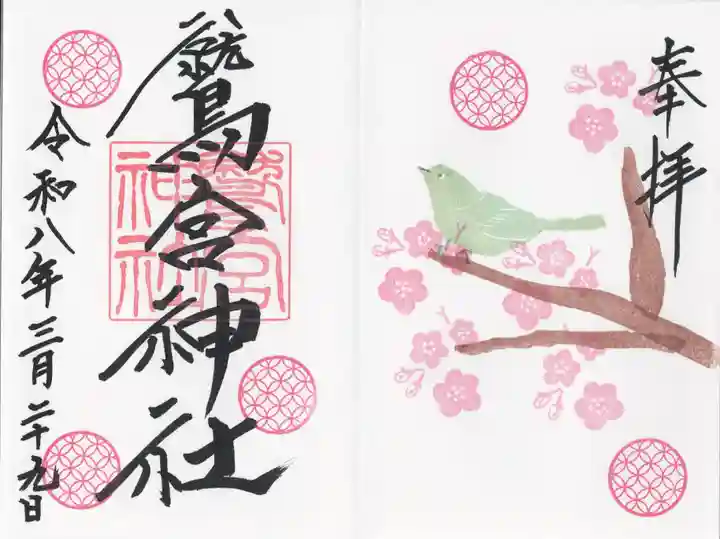 奉拝
鷲宮神社
鷲宮
神社
令和八年三月二十九日